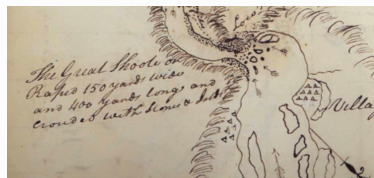 The Great Shoote or
Rapid 150 yards wide
and 400 yards long and
crouded with Stones &
Villag
2